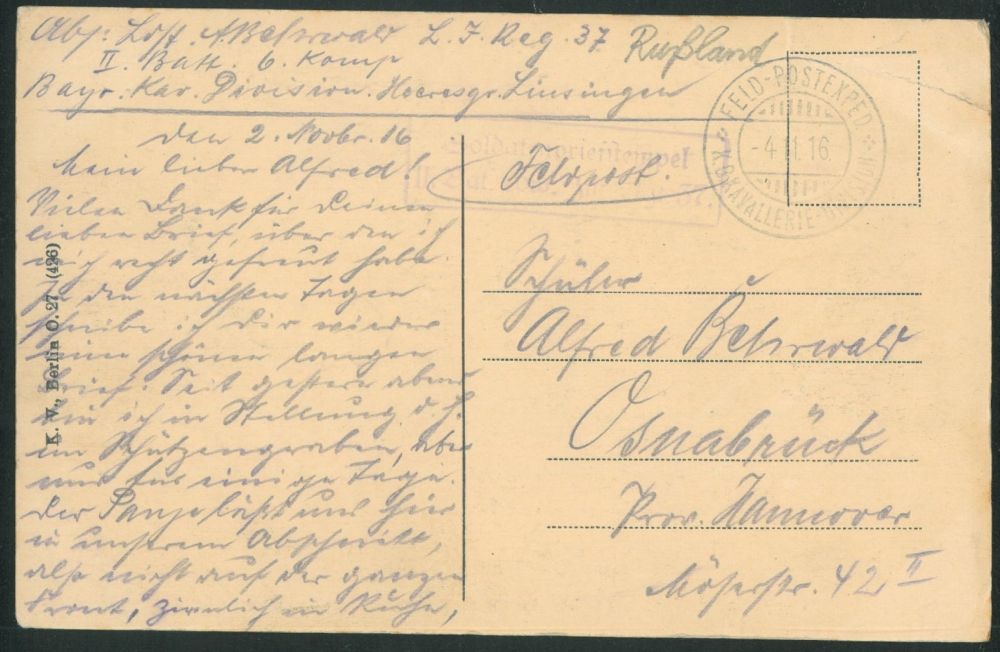 Abs: Ldst. A. Behrwald L. I. Reg. 37 Rußland
II. Batt. 6. Komp
Bayr. Kav. Division. Heeresgr. Linsingen
den 2. Novbr. 16
Mein lieber Alfred!
Vielen Dank für Deinen
lieben Brief, über den ich
mich recht gefreut habe.
In den nächsten Tagen
schreibe ich Dir wieder
einen schönen langen
Brief. Seit gestern abend
bin ich in Stellung d. h.
im Schützengraben, aber
nur für einige Tage.
Der Panje läßt uns hier
in unserem Abschnitt,
also nicht auf der ganzen
Front, ziemlich in Ruhe,
K. V., Berlin O. 27. (426)
Soldatenbriefstempel
Feldpost.
FELD-POSTEXPED
-4.11.16.
KAVALLERIE-DIVISION
Schüler
Alfred Behrwald
Osnabrück
Prov. Hannover
Möserstr. 42 II